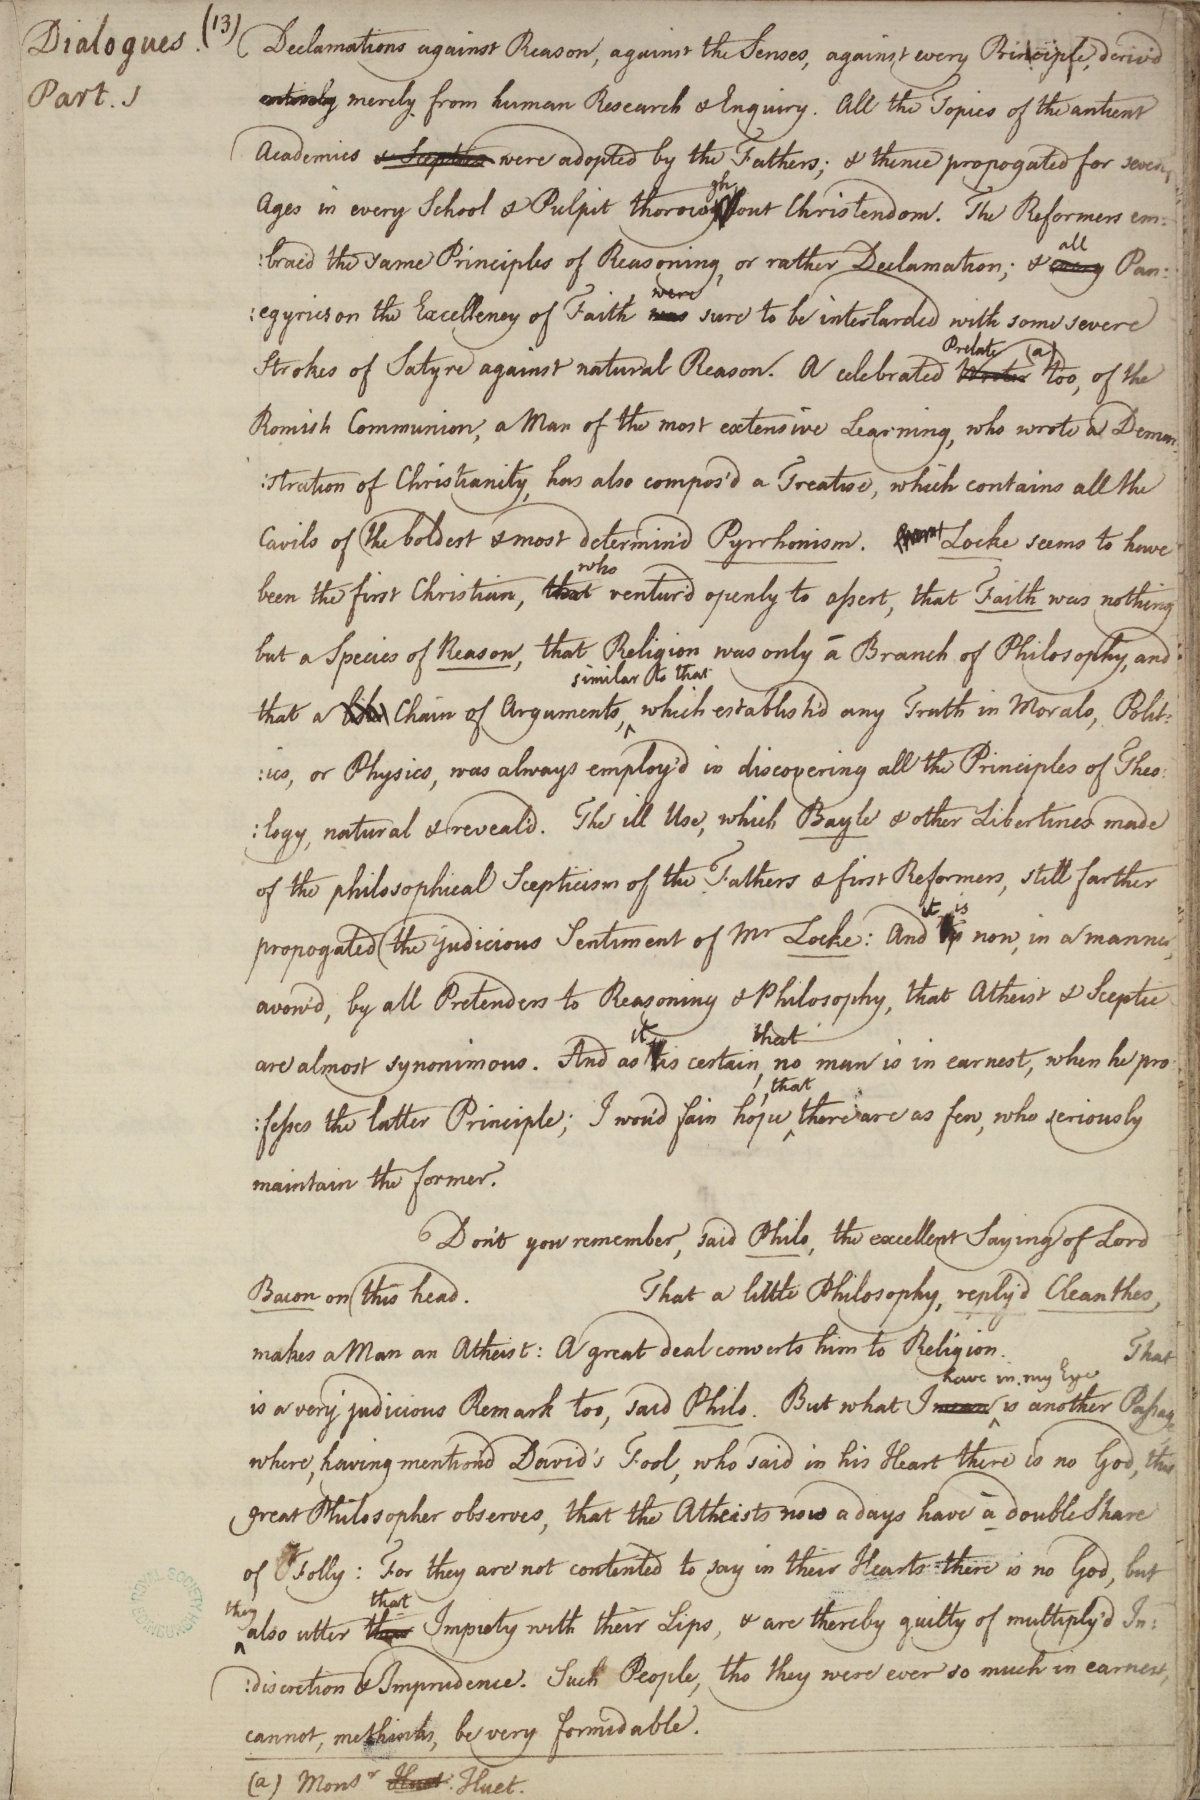 Dialogues. (13)
Part. 1
Declamations against Reason, against the Senses, against every Principle, deriv'd
entirely merely from human Research & Enquiry. All the Topics of the antient
Academics & Sceptics were adopted by the Fathers; & thence propogated for several
Ages in every School & Pulpit thoroughout Christendom. The Reformers em:
all
:brac'd the same Principles of Reasoning, or rather Declamation; & every Pan:
were
:egyrics on the Excellency of Faith was sure to be interlarded with some severe
Prelate (a)
Strokes of Satyre against natural Reason. A celebrated Writer too, of the
Romish Communion, a Man of the most extensive Learning, who wrote a Demon:
:stration of Christianity, has also compos'd a Treatise, which contains all the
Cavils of the boldest & most determin'd Pyrrhonism. Locke seems to have
who
been the first Christian, that ventur'd openly to assert, that Faith was nothing
but a Species of Reason, that Religion was only a Branch of Philosophy, and
similar to that
that a like Chain of Arguments, ^ which establish'd any Truth in Morals, Polit:
:ics, or Physics, was always employ'd in discovering all the Principles of Theo:
:logy, natural & reveal'd. The ill Use, which Bayle & other Libertines made
of the philosophical Scepticism of the Fathers & first Reformers, still farther
it is
propogated the judicious Sentiment of Mr Locke: And now, in a manner,
avow'd, by all Pretenders to Reasoning & Philosophy, that Atheist & Sceptic
it that
are almost synonimous. And as tis certain, no man is in earnest, when he pro
that
:fesses the latter Principle; I wou'd fain hope ^ there are as few, who seriously
maintain the former.
Don't you remember, said Philo, the excellent Saying of Lord
Bacon on this head. That a little Philosophy, reply'd Cleanthes,
makes a Man an Atheist: A great deal converts him to Religion. That
have in my Eye
is a very judicious Remark too, said Philo. But what I mean ^ is another Passage
where, having mention'd David's Fool, who said in his Heart there is no God, this
great Philosopher observes, that the Atheists now a days have a double Share
of Folly: For they are not contented to say in their Hearts there is no God, but
they that
^ also utter their Impiety with their Lips, & are thereby guilty of multiply'd In:
:discretion & Imprudence. Such People, tho they were ever so much in earnest,
cannot, methinks, be very formidable.
(a) Monsr Huet. Huet.